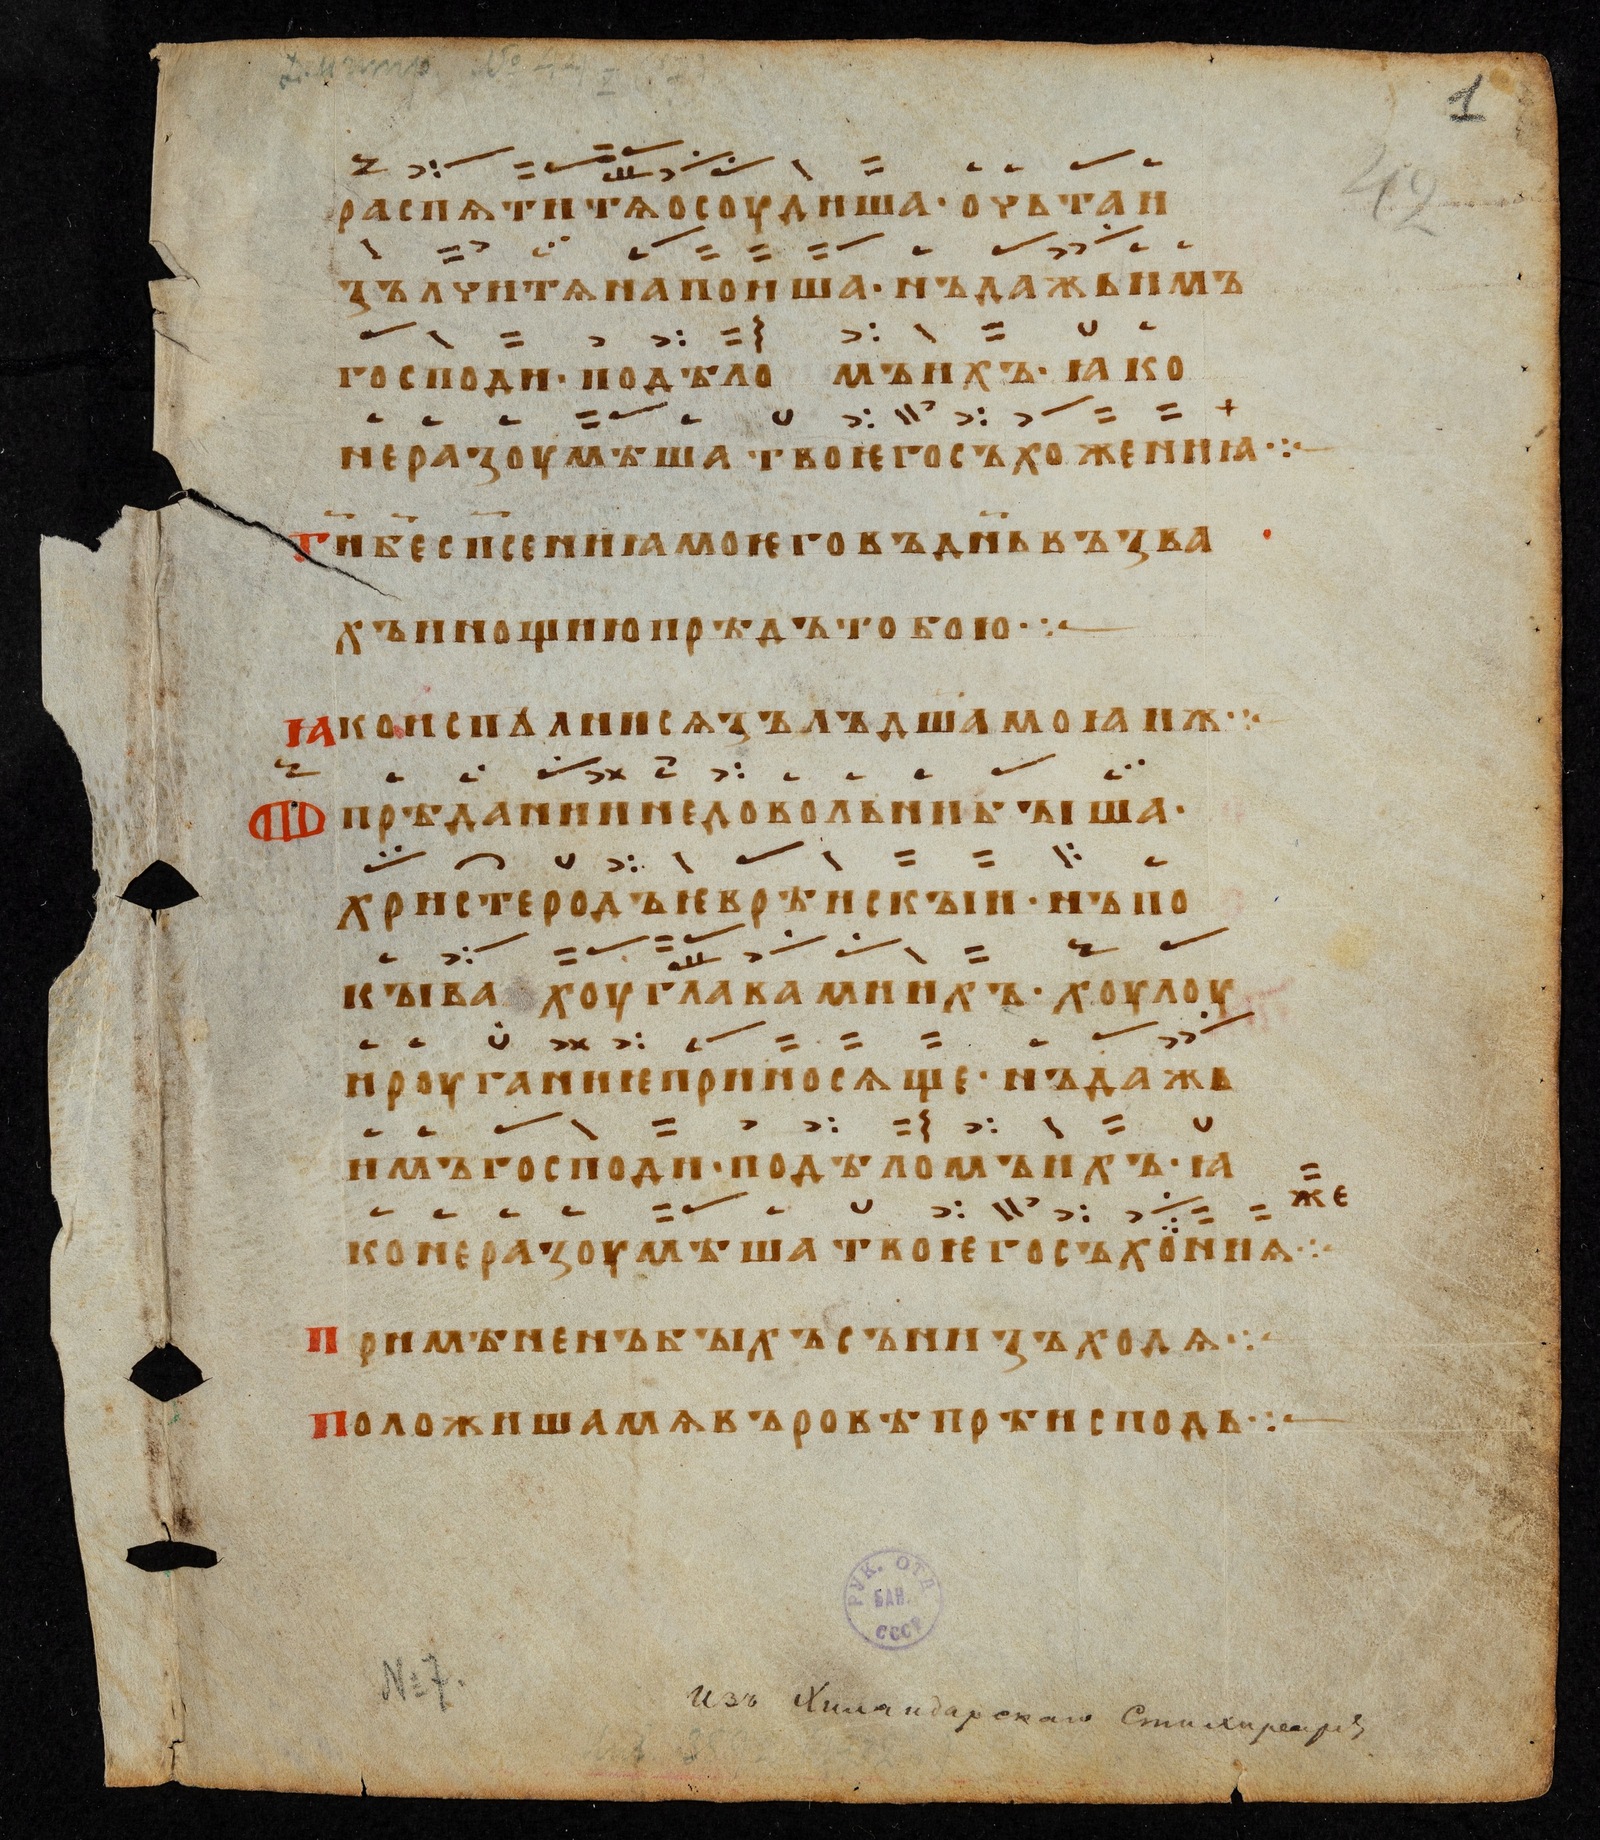 1
42
распѧтитѧосоудиша· оуьтаи
зълчитѧнапоиша· нъдажьимъ
господи· подѣло мъихъ· ꙗко
неразоумѣша твоѥгосъхожениꙗ·:
Ги҃б҃есп҃сениꙗмоѥговъдн҃ьвъзва
хъинощиюпрѣдътобою·:
Ꙗкоиспълнисѧзълъдшамоꙗиж·:
прѣданиинедовольниб ꙑша·
христеродъѥврѣискꙑи· нъпо
кꙑва хоуглавамиихъ· хоулоу
ироуганиѥприносѧще· нъдажь
имъгосподи· подѣломъихъ· ꙗ
же
конеразоумѣша твоѥгосъхонꙗ·:
Примѣненъбꙑхъсънизъходѧ·:
Положишамѧвъровѣпрѣисподь·:
РУК. ОТД
БАН.
СССР
№7.
Изъ Хиландарскаго Стихираря